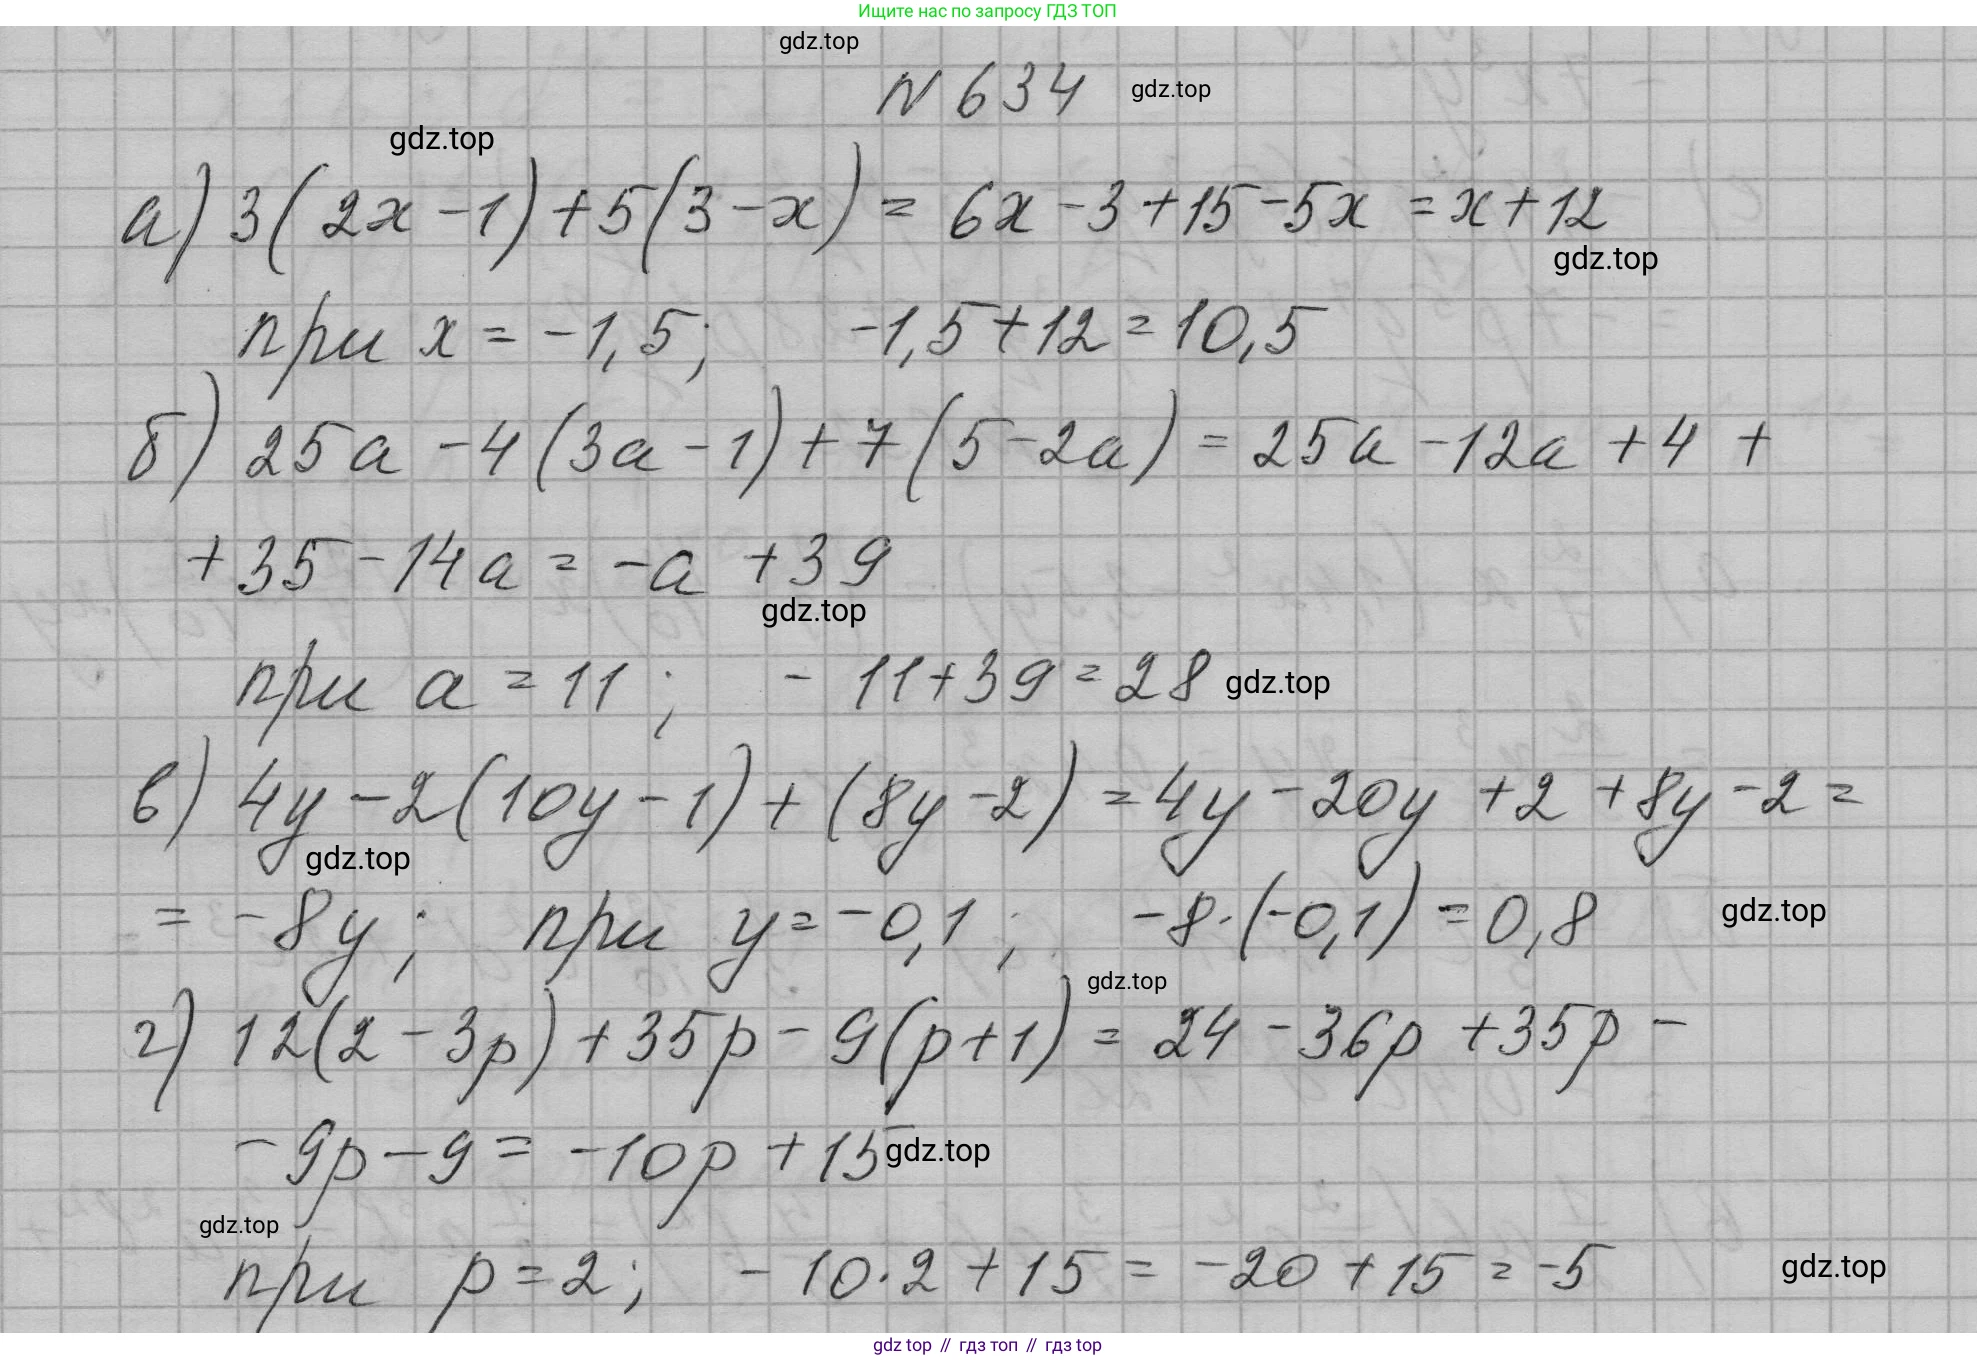 Ищите нас по запросу ГДЗ ТОП
gdz.top
N 634 gdz.top
gdz.top
а) 3(2x-1)+5(3-x) = 6x-3+15-5x = x+12
gdz.top
при x = -1,5; -1,5+12 = 10,5
б) 25a-4(3a-1)+7(5-2a) = 25a-12a+4+
+35-14a = -a+39
gdz.top
при a = 11; -11+39 = 28 gdz.top
в) 4y-2(10y-1)+(8y-2) = 4y-20y+2+8y-2 =
gdz.top
= -8y; при y = -0,1; -8·(-0,1) = 0,8 gdz.top
gdz.top
г) 12(2-3p)+35p-9(p+1) = 24-36p+35p-
-9p-9 = -10p+15 gdz.top
gdz.top
при p = 2; -10·2+15 = -20+15 = -5 gdz.top
gdz top // гдз топ // гдз top